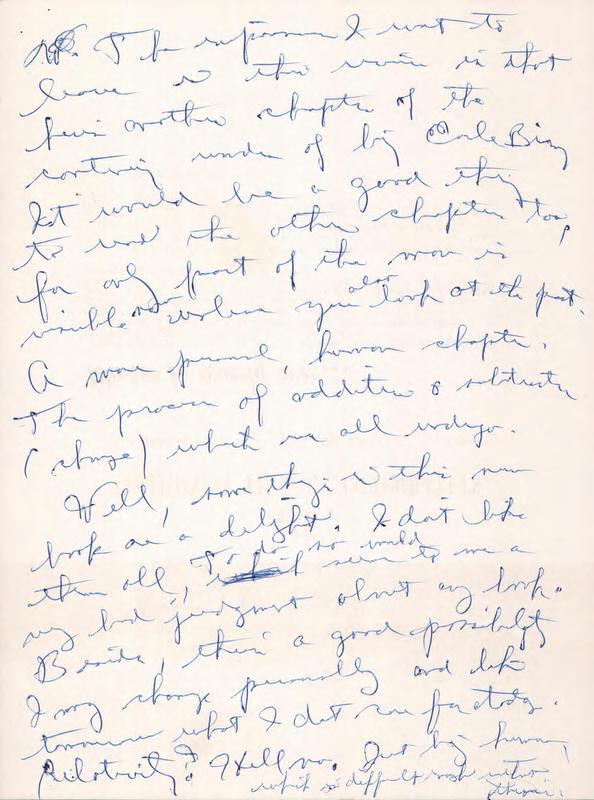 The impression I want to
leave in this review is that
here's another chapter of the
continuing wonder of big Corle Bing
It would be a good thing
to read the other chapters too,
for only part of the man is
visible now unless you also look at the past.
A more personal, human chapter.
The process of addition & subtraction
(change) which we all undergo.
Well, some things in this new
book are a delight. I don't like
them all, To do so would seem to me a
very bad judgment about any book.
Beside, there's a good possibility
I may change personally and like
tomorrow what I don't care for today.
Relativity? Hell no. Just being human,
which is difficult enough without